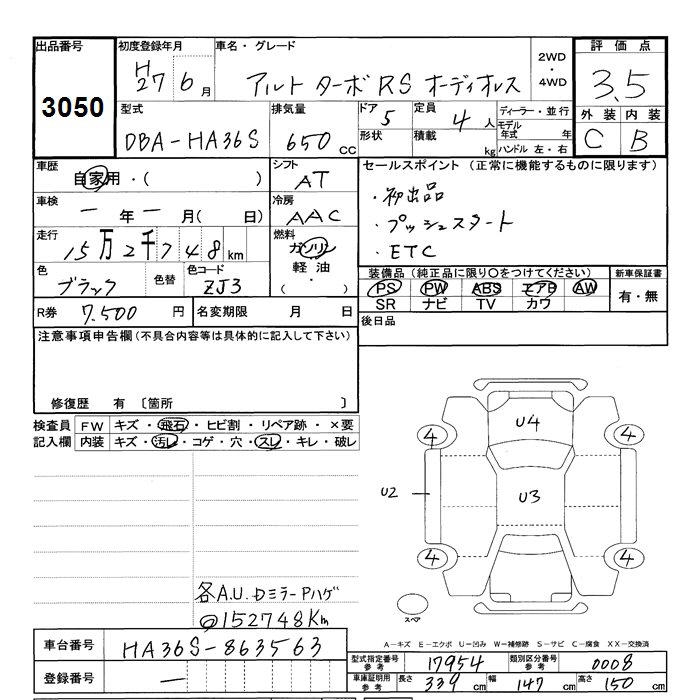 出品番号
3050
初度登録年月
H27 6月
車名・グレード
アルト ターボRS オーディオレス
2WD・4WD
評価点
3.5
型式
DBA-HA36S
排気量
650 CC
ドア 5
形状
定員 4人
積載 kg
ディーラー・並行
モデル年式 年
ハンドル 左・右
外装 内装
C B
車歴
自家用・( )
シフト
AT
セールスポイント (正常に機能するものに限ります)
・初出品
・プッシュスタート
・ETC
車検
ー年ー月( 日)
冷房
AAC
走行
15万2千748km
燃料
ガソリン
軽油
・( )
色
ブラック
色替
色コード
ZJ3
装備品 (純正品に限り○をつけてください)
PS PW ABS エアB AW
SR ナビ TV カワ
新車保証書
有・無
R券 7,500円
名変期限 月 日
後日品
注意事項申告欄 (不具合内容等は具体的に記入して下さい)
修復歴 有 〔箇所 〕
検査員記入欄
FW キズ・飛石・ヒビ割・リペア跡・×要
内装 キズ・汚レ・コゲ・穴・スレ・キレ・破レ
各A.U.DミラーPハゲ
@152748Km
U4
4 4
U2
U3
4 4
スペア
A-キズ E-エクボ U-凹み W-補修跡 S-サビ C-腐食 XX-交換済
車台番号 HA36S-863563
登録番号 ー
型式指定番号 参考 17954
類別区分番号 参考 0008
車庫証明用 参考 長さ 339 cm 幅 147 cm 高さ 150 cm